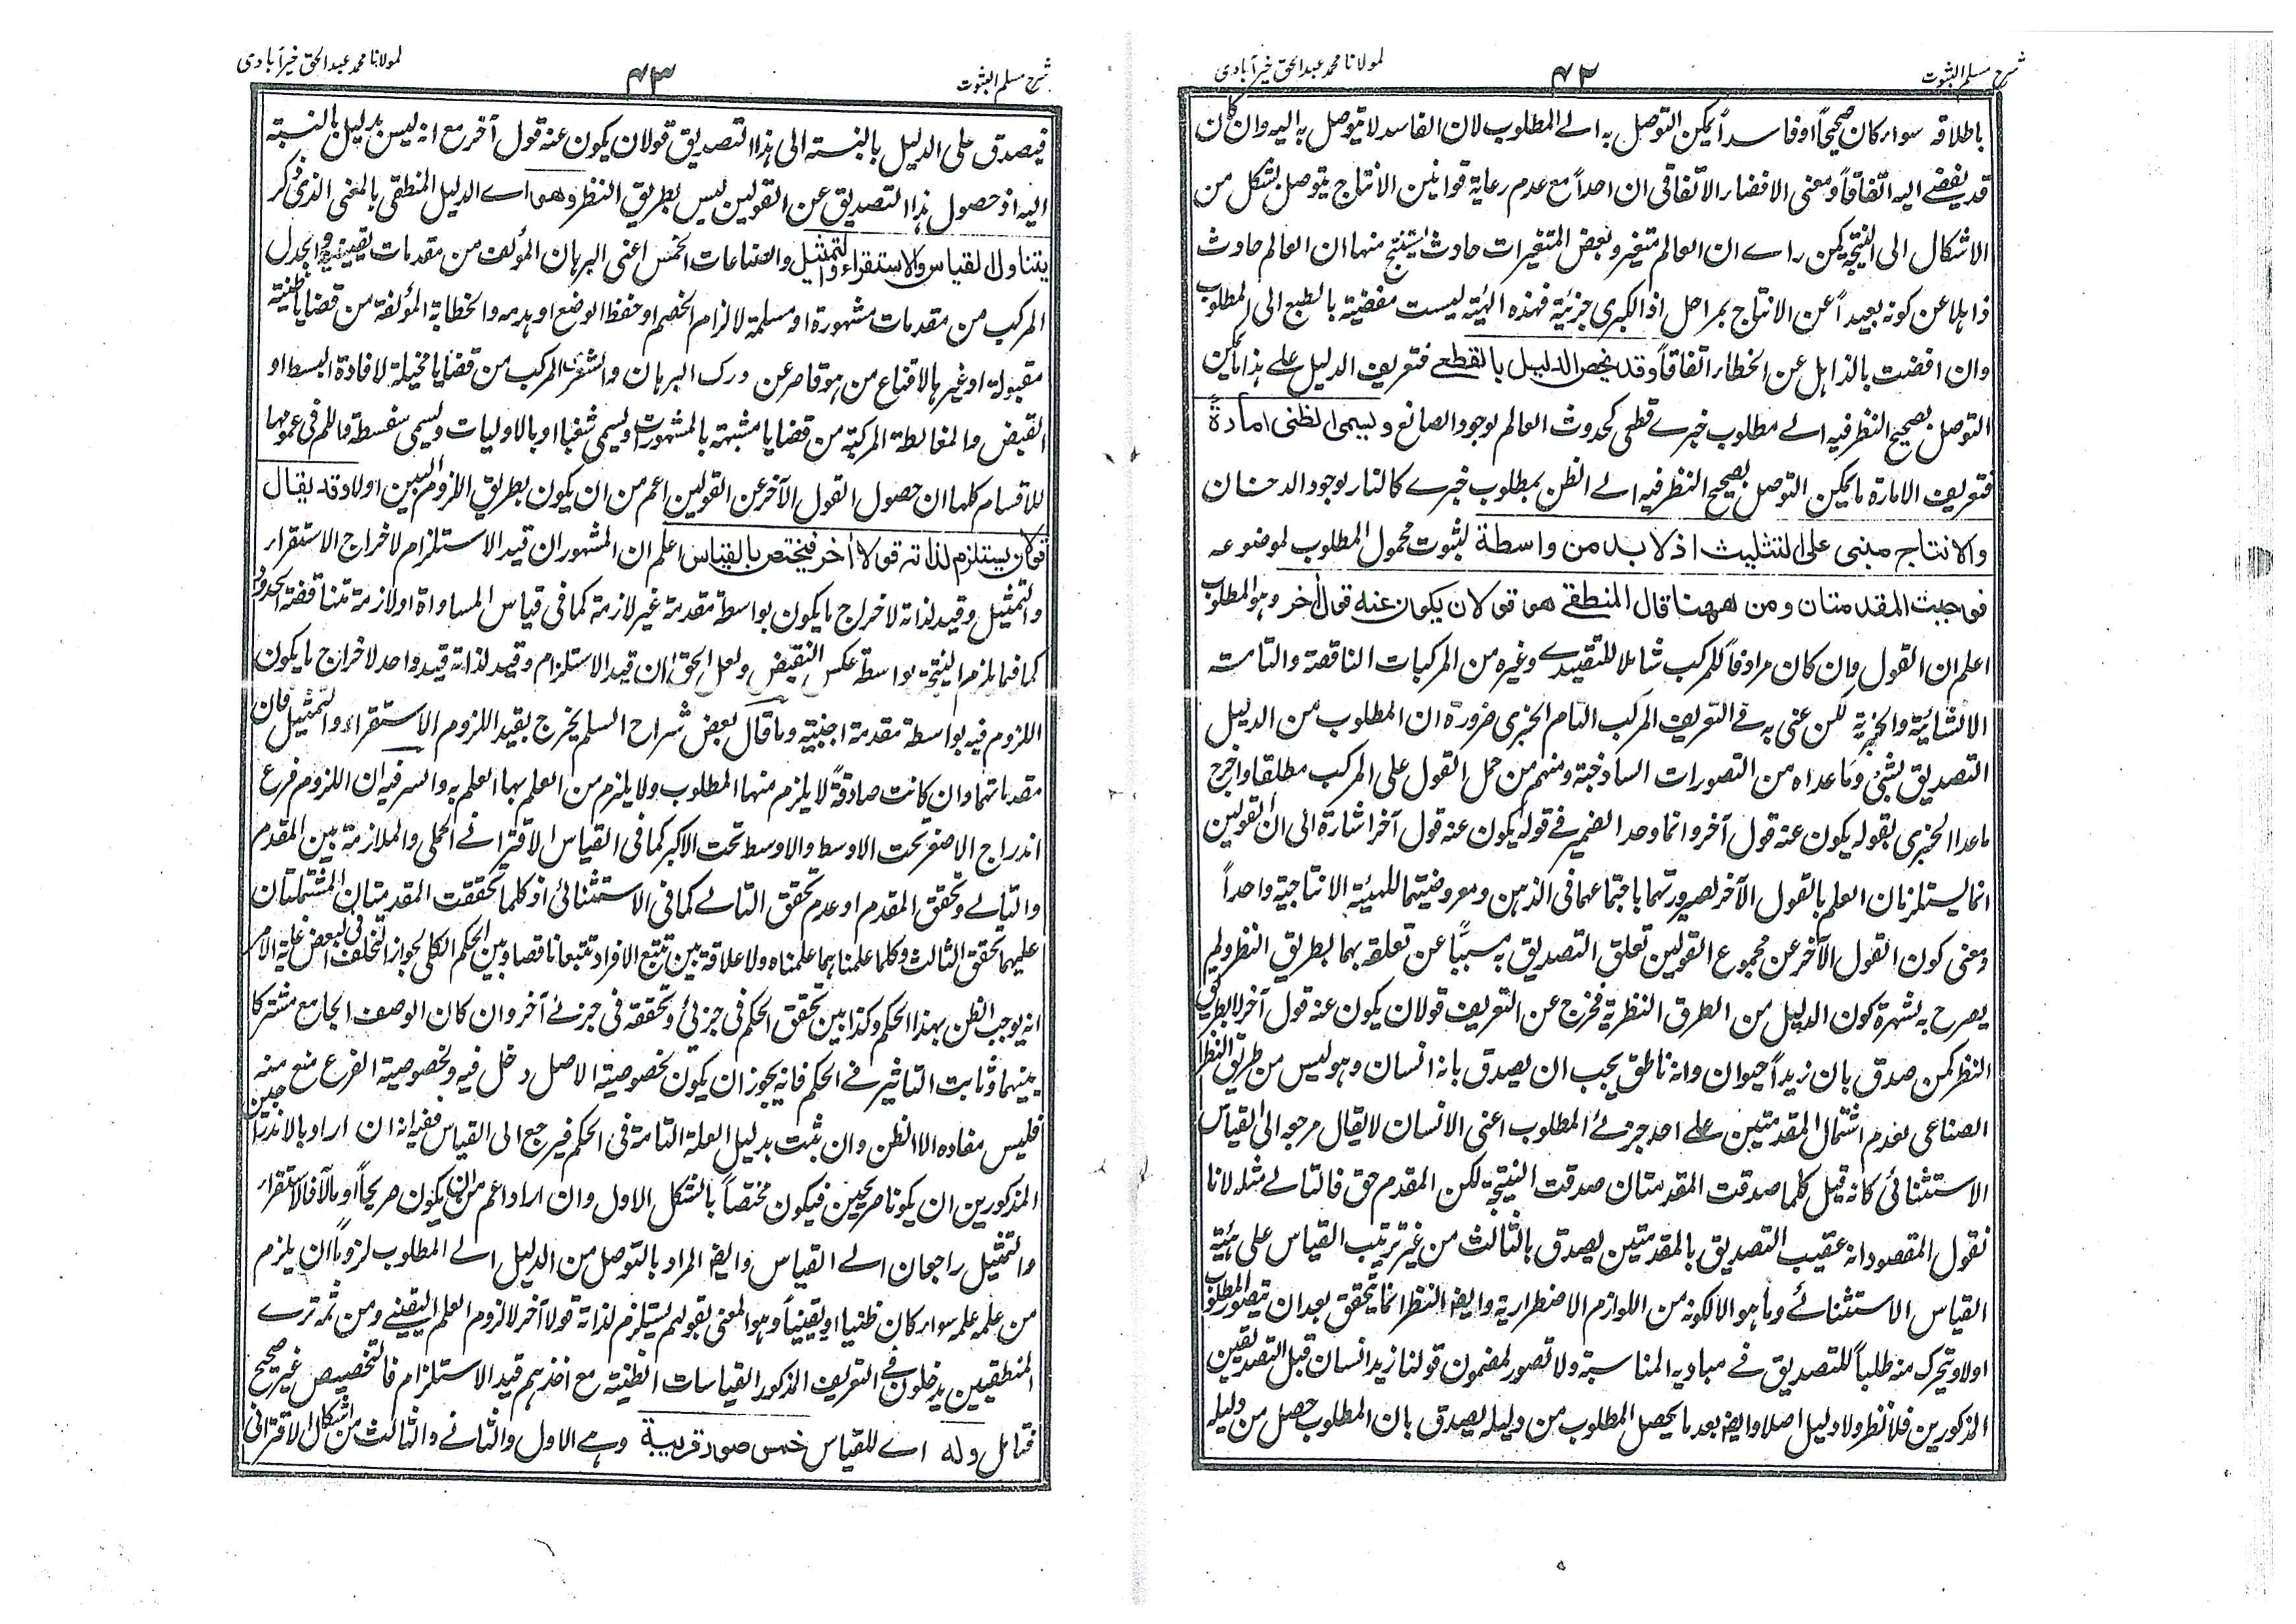 شرح مسلم الثبوت
۴۲
لمولانا محمد عبد الحق خیرآبادی
باطلاقه سواء كان صحيحاً او فاسداً يمكن التوصل به الے المطلوب لان الفاسد لا يتوصل به اليه وان كان
قد يفضے اليه اتفاقاً ومعنى الافضاء الاتفاقى ان احداً مع عدم رعاية قوانين الانتاج يتوصل بشكل من
الاشكال الى النتيجة كمن راے ان العالم متغير وبعض المتغيرات حادث يستنتج منها ان العالم حادث
ذاهلا عن كونه بعيداً عن الانتاج بمراحل اذ الكبرى جزئية فهذه الهيئة ليست مفضية بالطبع الى المطلوب
وان افضت بالذاهل عن الخطاء اتفاقاً وقد يخص الدليل بالقطعے فتعريف الدليل علے هذا ما يمكن
التوصل بصحيح النظر فيه الے مطلوب خبرے قطعى كحدوث العالم لوجود الصانع ويسمى الظنى امارة
فتعريف الامارة ما يمكن التوصل بصحيح النظر فيه الے الظن بمطلوب خبرے كالنار لوجود الدخان
والانتاج مبنى على التثليث اذ لا بد من واسطة لثبوت محمول المطلوب لموضوعه
فوجبت المقدمتان ومن ههنا قال المنطقے هو قولان يكون عنه قول أخر وهو المطلوب
اعلم ان القول وان كان مرادفاً للمركب شاملا للتقييدے وغيره من المركبات الناقصة والتامة
الانشائية والخبرية لكن عنى به فے التعريف المركب التام الخبرى ضرورة ان المطلوب من الدليل
التصديق بشئ وما عداه من التصورات الساذجة ومنهم من حمل القول على المركب مطلقا واخرج
ماعدا الخبرى بقوله يكون عنه قول آخر وانما وحد الضمير فے قوله يكون عنه قول آخر اشارة الى ان القولين
انما يستلزمان العلم بالقول الآخر لصيرورتهما باجتماعهما فى الذهن ومعروضيتهما للهيئة الانتاجية واحداً
ومعنى كون القول الآخر عن مجموع القولين تعلق التصديق به مسبباً عن تعلقه بهما بطريق النظر ولم
يصرح به لشهرة كون الدليل من الطرق النظرية فخرج عن التعريف قولان يكون عنه قول آخر لا بطريق
النظر كمن صدق بان زيداً حيوان وانه ناطق يجب ان يصدق بانه انسان وهو ليس من طريق النظر
الصناعى لعدم اشتمال المقدمتين علے احد جزئے المطلوب اعنى الانسان لا يقال مرجعه الى القياس
الاستثنائى كانه قيل كلما صدقت المقدمتان صدقت النتيجة لكن المقدم حق فالتالے مثله لانا
نقول المقصود انه عقيب التصديق بالمقدمتين يصدق بالثالث من غير ترتيب القياس على هيئة
القياس الاستثنائے وما هو الا لكونه من اللوازم الاضطرارية وايضا النظر انما يتحقق بعد ان يتصور المطلوب
اولا ويتحرك منه طلباً للتصديق فے مباديه المناسبة ولا تصور لمضمون قولنا زيد انسان قبل التصديقين
المذكورين فلا نظر ولا دليل اصلا وايضا بعد ما يحصل المطلوب من دليله يصدق بان المطلوب حصل من دليله
شرح مسلم الثبوت
۴۳
لمولانا محمد عبد الحق خیرآبادی
فيصدق على الدليل بالنسبة الى هذا التصديق قولان يكون عنه قول آخر مع انه ليس بدليل بالنسبة
اليه اذ حصول هذا التصديق عن القولين ليس بطريق النظر وهو اے الدليل المنطقى بالمعنى الذى ذكر
يتناول القياس والاستقراء والتمثيل والصناعات الخمس اعنى البرهان المؤلف من مقدمات يقينية والجدل
المركب من مقدمات مشهورة او مسلمة لالزام الخصم او حفظ الوضع او هدمه والخطابة المؤلفة من قضايا ظنية
مقبولة او غيرها لاقناع من هو قاصر عن درك البرهان والشعر المركب من قضايا مخيلة لافادة البسط او
القبض والمغالطة المركبة من قضايا مشبهة بالمشهورات ويسمى شغبا او بالاوليات ويسمى سفسطة واللم فى عمومها
للاقسام كلها ان حصول القول الآخر عن القولين اعم من ان يكون بطريق اللزوم البين اولا وقد يقال
قولان يستلزم لذاته قولا أخر فيختص بالقياس اعلم ان المشهور ان قيد الاستلزام لاخراج الاستقراء
والتمثيل وقيد لذاته لاخراج ما يكون بواسطة مقدمة غير لازمة كما فى قياس المساواة او لازمة متناقضة الحدود
كما فيما يلزم النتيجة بواسطة عكس النقيض ولعل الحق ان قيد الاستلزام وقيد لذاته قيد واحد لاخراج ما يكون
اللزوم فيه بواسطة مقدمة اجنبية وما قال بعض شراح السلم يخرج بقيد اللزوم الاستقراء والتمثيل فان
مقدماتهما وان كانت صادقةً لا يلزم منها المطلوب ولا يلزم من العلم بها العلم به والسر فيه ان اللزوم فرع
اندراج الاصغر تحت الاوسط والاوسط تحت الاكبر كما فى القياس الاقترانے الحملى والملازمة بين المقدم
والتالے وتحقق المقدم او عدم تحقق التالے كما فى الاستثنائى اذ كلما تحققت المقدمتان المشتملتان
عليهما تحقق الثالث وكلما علمناهما علمناه ولا علاقة بين تتبع الافراد تتبعا ناقصا وبين الحكم الكلى لجواز التخلف فى البعض غاية الامر
انه يوجب الظن بهذا الحكم وكذا بين تحقق الحكم فى جزئى وتحققه فى جزئے آخر وان كان الوصف الجامع مشتركا
بينهما وثابت التاثير فے الحكم فانه يجوز ان يكون لخصوصية الاصل دخل فيه ولخصوصية الفرع منع منه
فليس مفاده الا الظن وان ثبت بدليل العلة التامة فى الحكم فيرجع الى القياس ففيه انه ان اراد بالاندراجين
المذكورين ان يكونا صريحين فيكون مختصاً بالشكل الاول وان اراد اعم من ان يكون صريحاً او مآلا فالاستقراء
والتمثيل راجعان الے القياس وايضا المراد بالتوصل من الدليل الے المطلوب لزوماً ان يلزم
من علمه علمه سواء كان ظنيا او يقينياً وهو المعنى بقولهم يستلزم لذاته قولا آخر لا لزوم العلم اليقينے ومن ثمه ترے
المنطقيين يدخلون فے التعريف المذكور القياسات الظنية مع اخذهم قيد الاستلزام فالتخصيص غير صحيح
فتامل وله اے للقياس خمس صور قريبة وهے الاول والثانے والثالث من اشكال الاقترانى